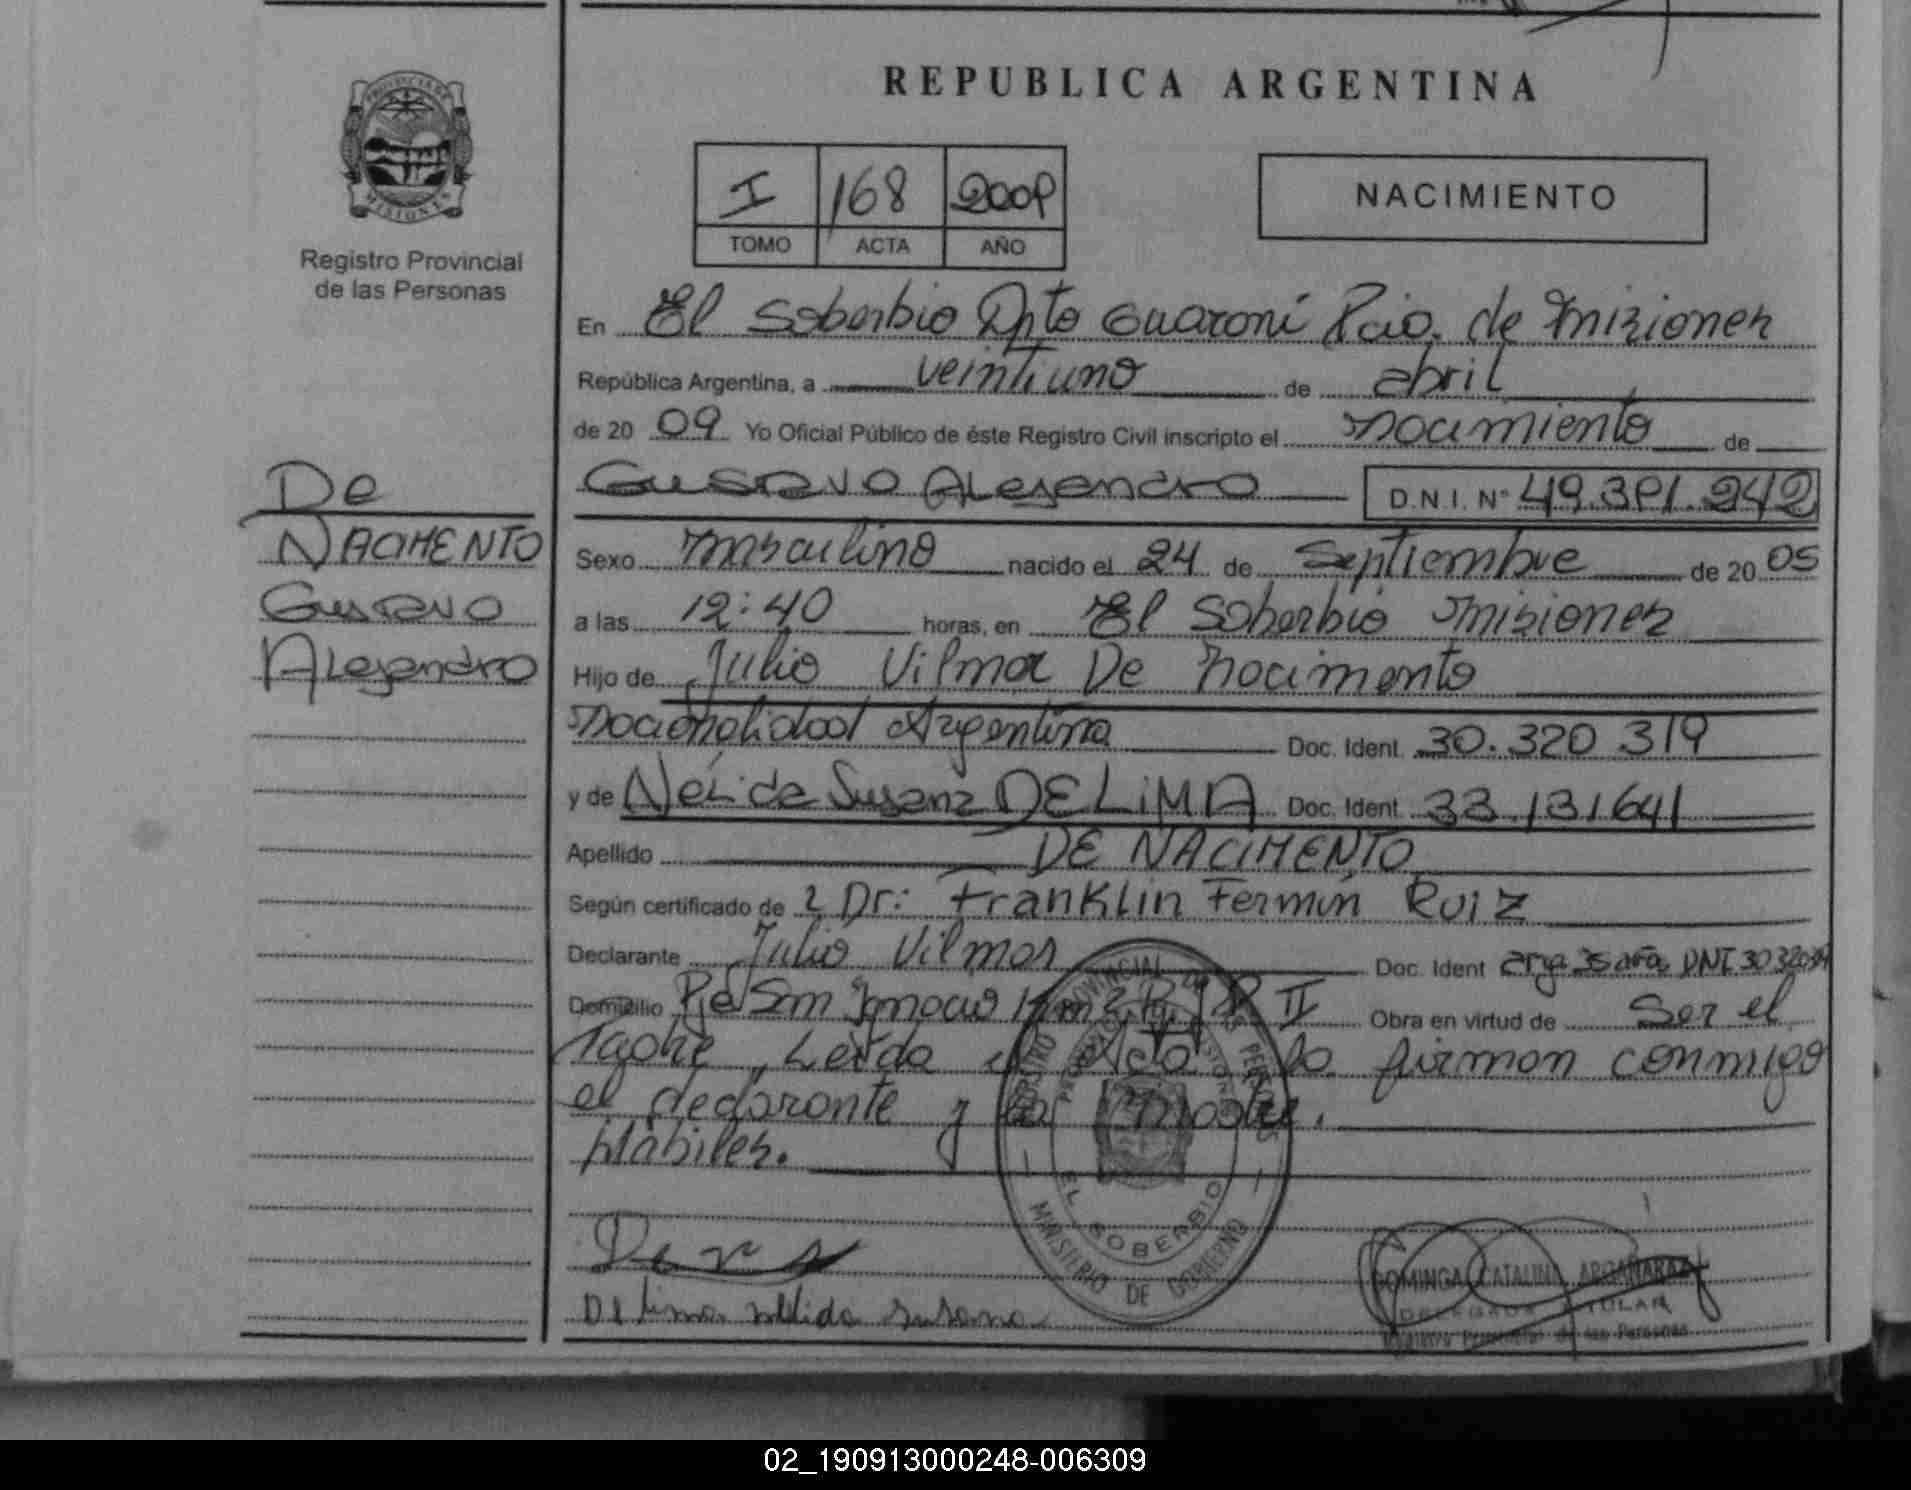 REPUBLICA ARGENTINA
PROVINCIA DE
MISIONES
Registro Provincial
de las Personas
I 168 2009
TOMO ACTA AÑO
NACIMIENTO
En El Soberbio Dpto Guaraní Pcia. de Misiones
República Argentina, a veintiuno de abril
de 20 09 Yo Oficial Público de éste Registro Civil inscripto el nacimiento de
Gustavo Alejandro D.N.I. Nº 49.391.242
De
NACIMENTO
Gustavo
Alejandro
Sexo masculino nacido el 24 de Septiembre de 20 05
a las 12:40 horas, en El Soberbio Misiones
Hijo de Julio Vilmar De Nacimento
nacionalidad Argentina Doc. Ident. 30.320 319
y de Nélida Susana DE LiMA Doc. Ident. 33.131641
Apellido DE NACIMENTO
Según certificado de Dr: Franklin Fermín Ruiz
Declarante Julio Vilmar Doc. Ident arg. 35 años DNI
Domicilio Pje San Ignacio Km II Obra en virtud de Ser el
Padre, Leída el Acta la firman conmigo
el declarante y la madre.
Hábiles.
REGISTRO PROVINCIAL DE LAS PERSONAS
PROVINCIA DE MISIONES
EL SOBERBIO
MINISTERIO DE GOBIERNO
De lima nélida susana
DOMINGA CATALINA ARGAÑARAZ
DELEGADA TITULAR
Registro Provincial de las Personas
02_190913000248-006309